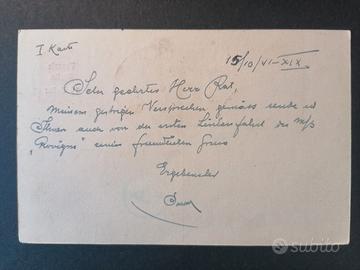 I Karte
15/10/VI-XIX
Sehr geehrter Herr Rat,
Meinem gestrigen Versprechen gemäss sende ich
Ihnen auch von der ersten Linienfahrt des M/S
„Rovigno" einen freundlichen Gruss
Ergebenster
subito